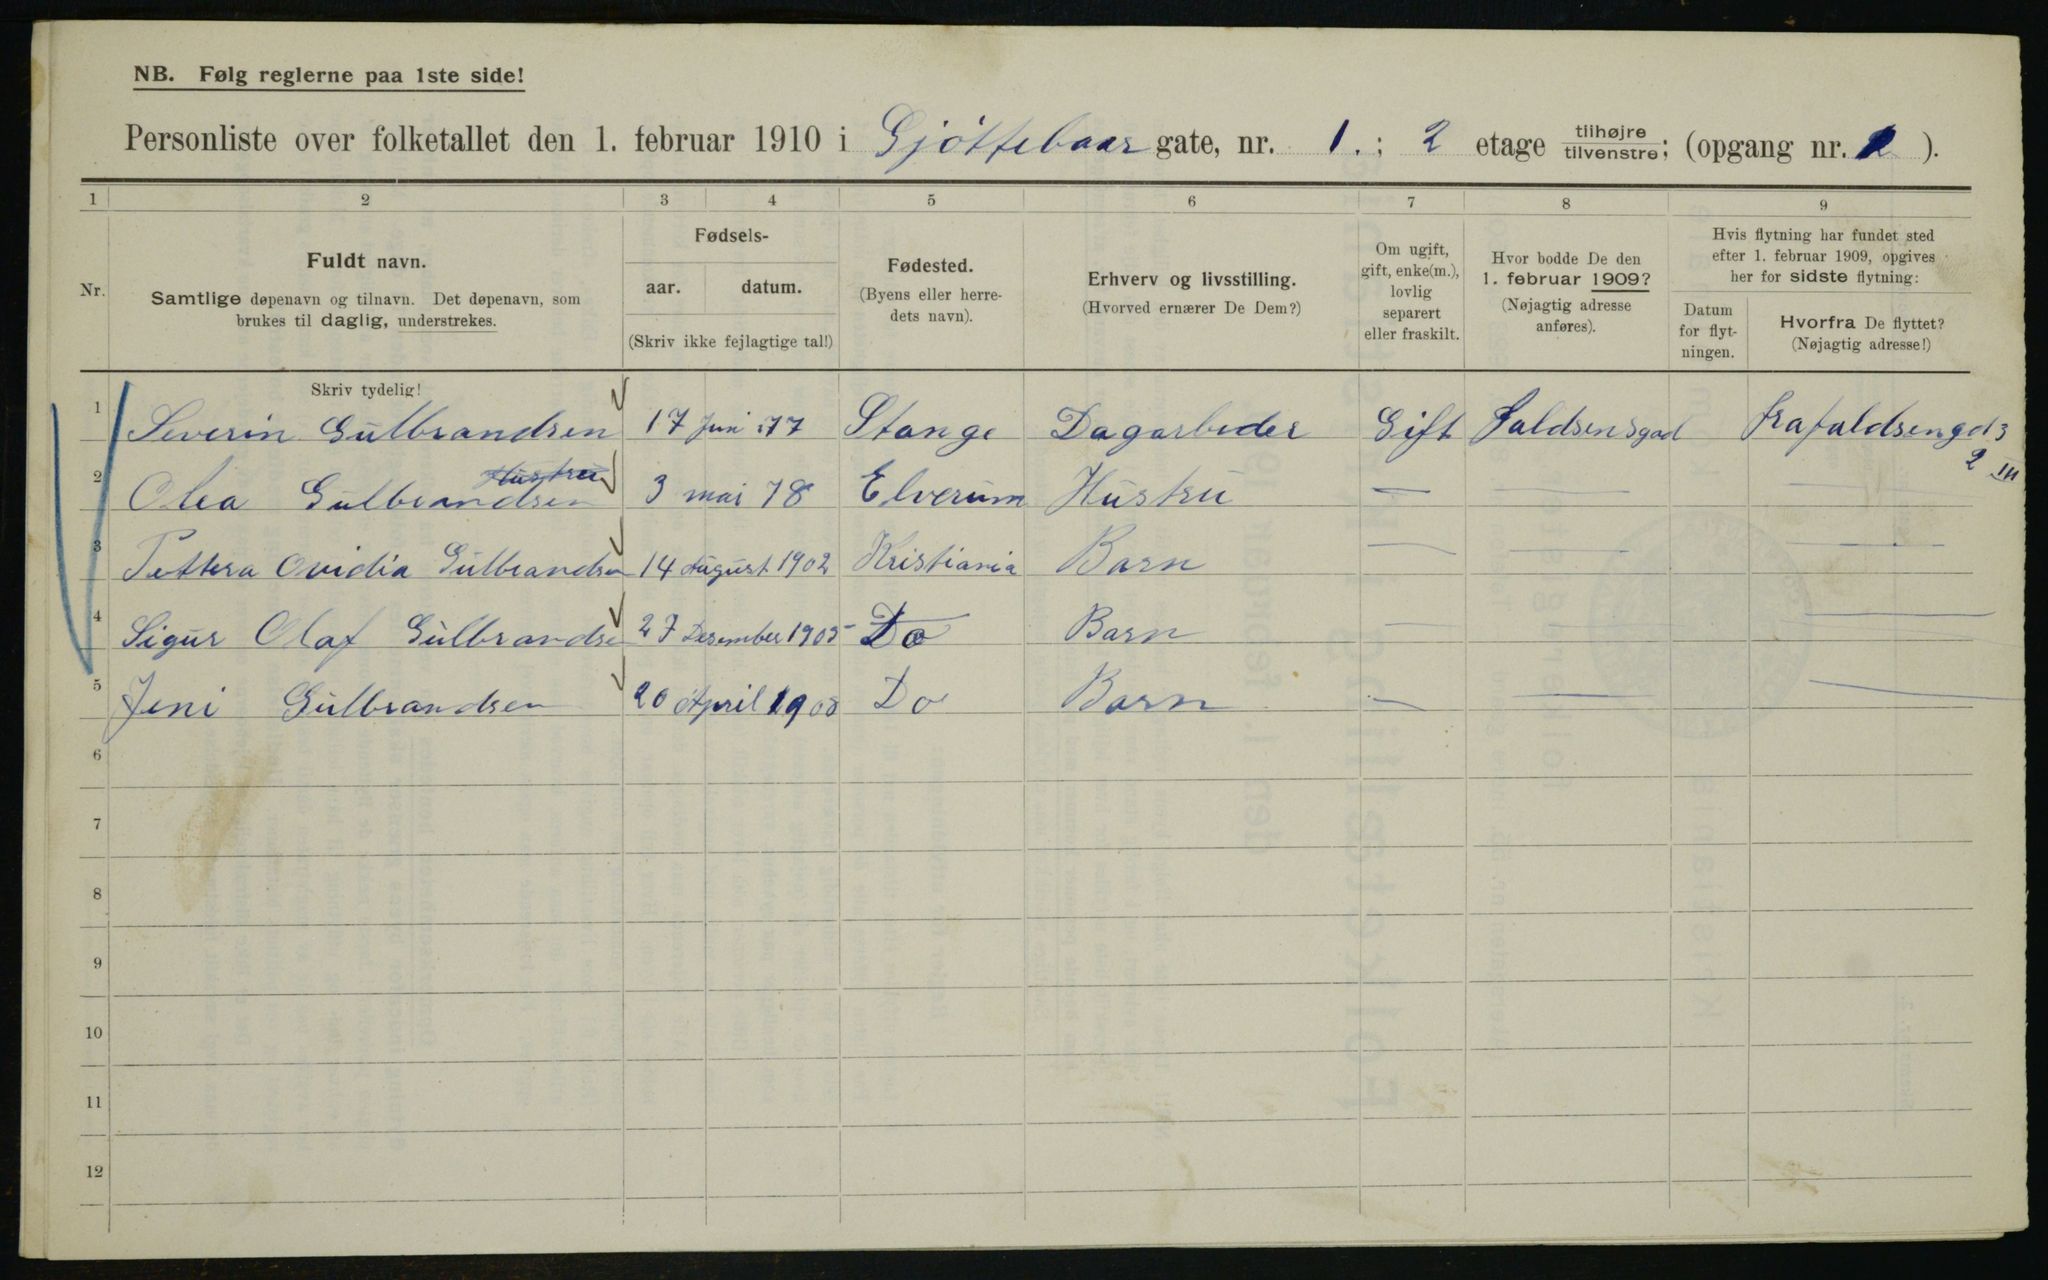 NB. Følg reglerne paa 1ste side!
Personliste over folketallet den 1. februar 1910 i Gjøttebaar gate, nr. 1.; 2 etage tilhøjre/tilvenstre; (opgang nr. ).
1 2 3 4 5 6 7 8 9
Nr.
Fuldt navn.
Samtlige døpenavn og tilnavn. Det døpenavn, som
brukes til daglig, understrekes.
Fødsels-
aar. datum.
(Skriv ikke fejlagtige tal!)
Fødested.
(Byens eller herre-
dets navn).
Erhverv og livsstilling.
(Hvorved ernærer De Dem?)
Om ugift,
gift, enke(m.),
lovlig
separert
eller fraskilt.
Hvor bodde De den
1. februar 1909?
(Nøjagtig adresse
anføres).
Hvis flytning har fundet sted
efter 1. februar 1909, opgives
her for sidste flytning:
Datum
for flyt-
ningen.
Hvorfra De flyttet?
(Nøjagtig adresse!)
Skriv tydelig!
1 Severin Gulbrandsen 17 Juni 77 Stange Dagarbeder Gift Faldsensgad fra faldsengd 3
2 III
Hustru
2 Olea Gulbrandsen 3 mai 78 Elverum Hustru — — —
3 Pettera Ovidia Gulbrandsen 14 August 1902 Kristiania Barn — — —
4 Sigur Olaf Gulbrandse 27 Desember 1905 Do Barn — — —
5 Jeni Gulbrandsen 20 April 1908 Do Barn — — —
6
7
8
9
10
11
12